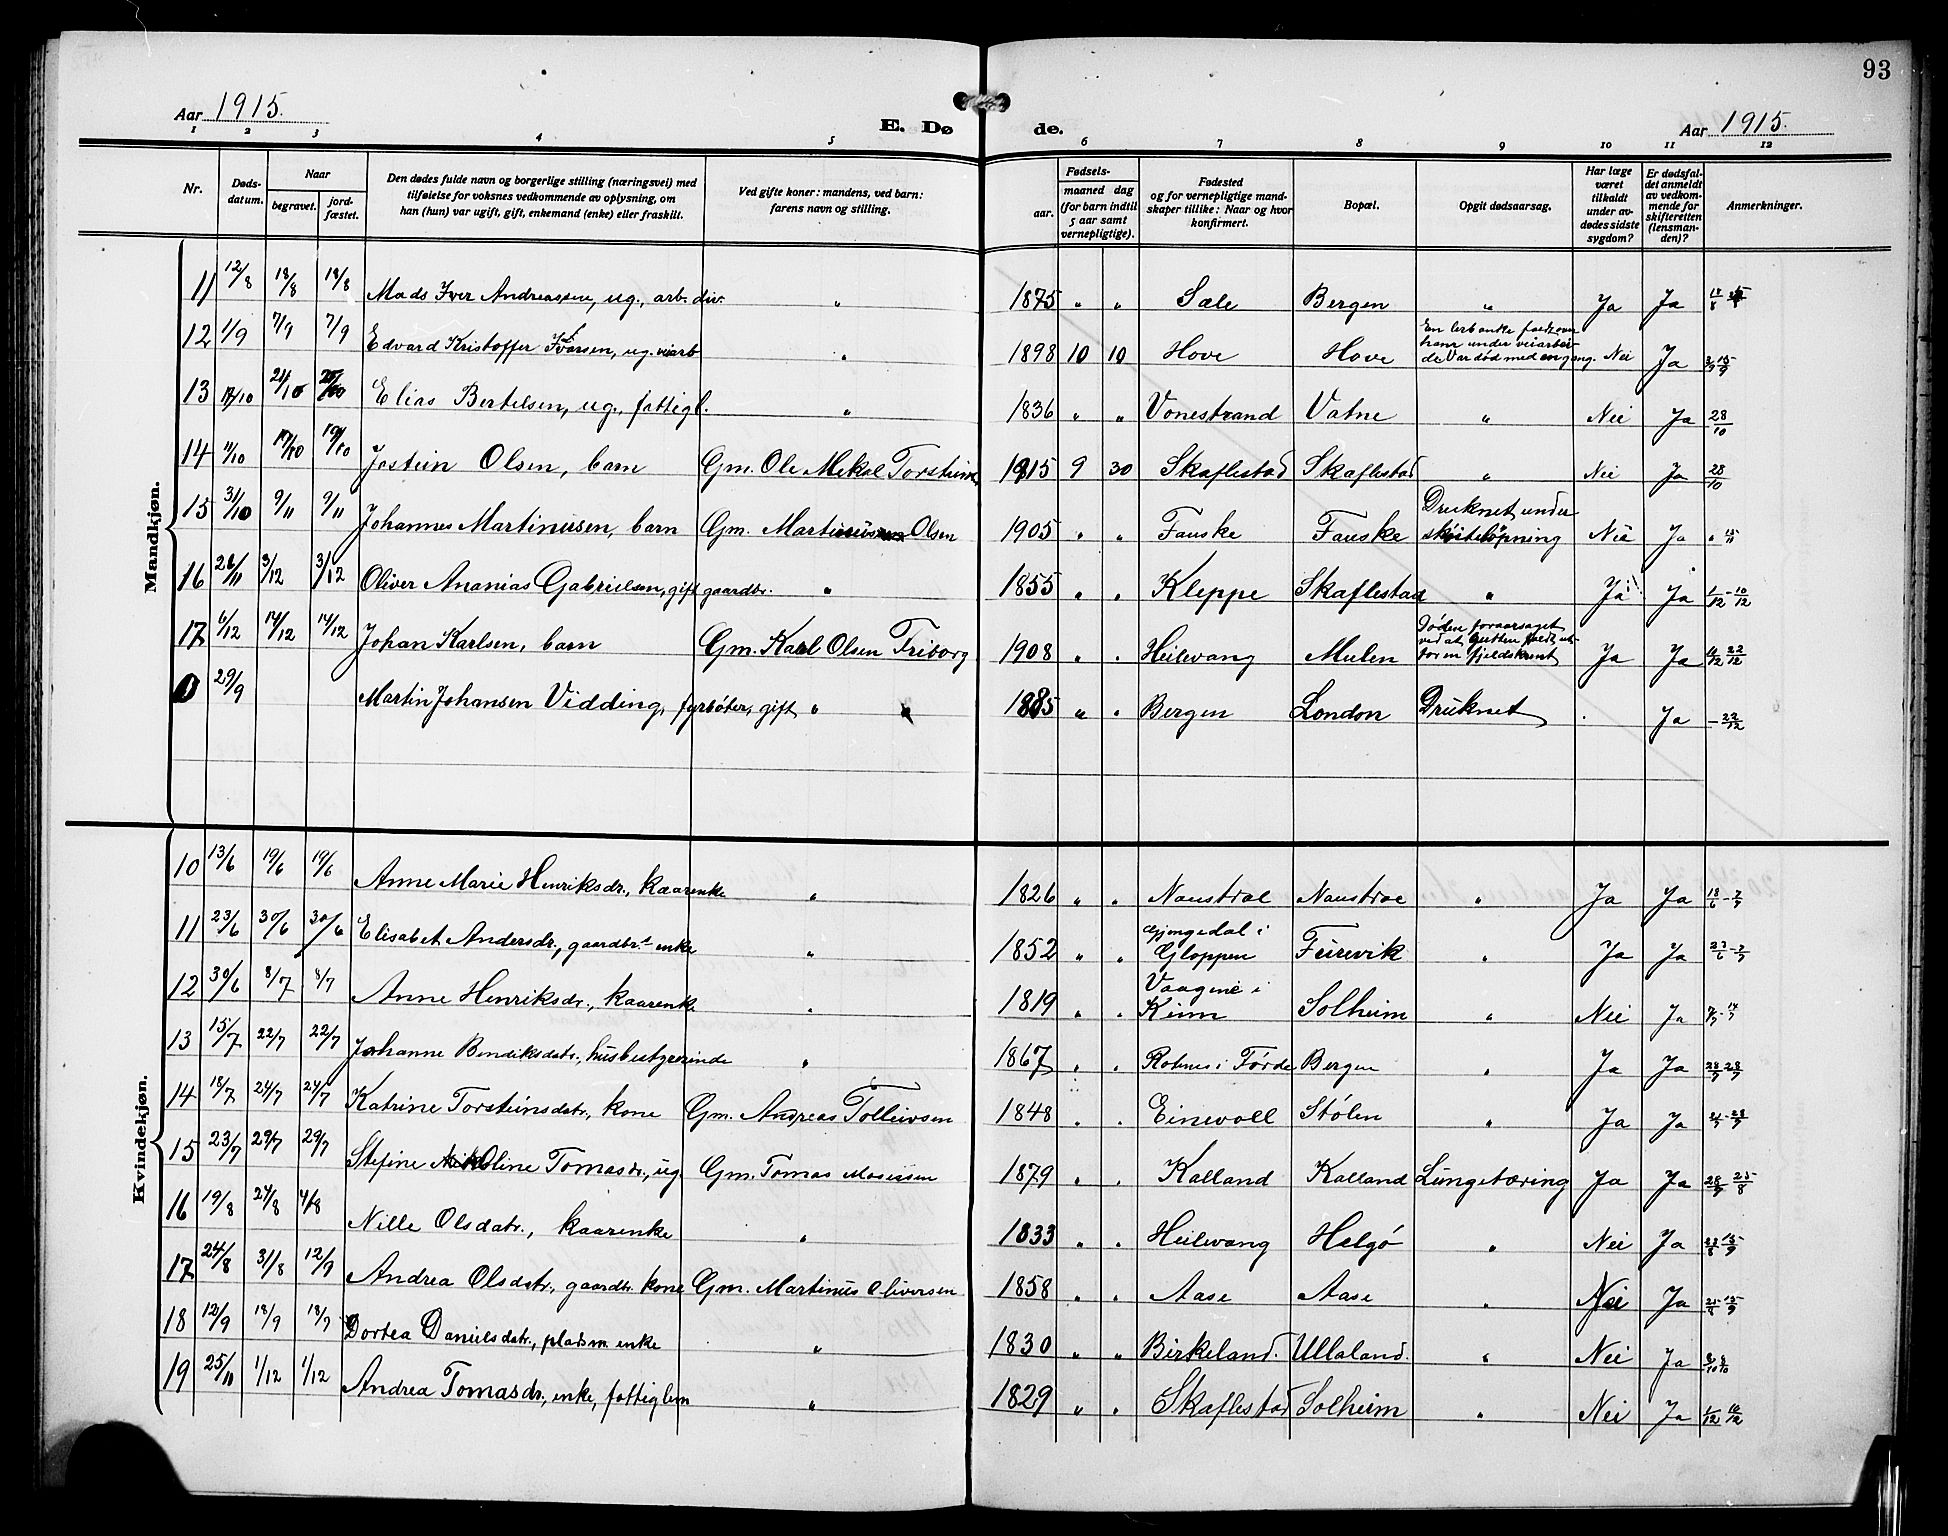 93
Aar 1915. E. Døde. Aar 1915.
1 2 3 4 5 6 7 8 9 10 11 12
Nr. Dødsdatum. Naar begravet. jordfæstet. Den dødes fulde navn og borgerlige stilling (næringsvei) med tilføielse for voksnes vedkommende av oplysning, om han (hun) var ugift, gift, enkemand (enke) eller fraskilt. Ved gifte koner: mandens, ved barn: farens navn og stilling. Fødsels- aar. maaned dag (for barn indtil 5 aar samt vernepligtige). Fødested og for vernepligtige mandskaper tillike: Naar og hvor konfirmert. Bopæl. Opgit dødsaarsag. Har læge været tilkaldt under avdødes sidste sygdom? Er dødsfaldet anmeldt av vedkommende for skifteretten (lensmanden)? Anmerkninger.
Mandkjøn.
11 12/8 18/8 18/8 Mads Iver Andreassen, ug., arb. div. " 1875 " " Sæle Bergen " Ja Ja
12 1/9 7/9 7/9 Edvard Kristoffer Ivarsen, ug. veiarb " 1898 10 10 Hove Hove En lerbanke faldt over hans under veiarbeide Var død med en gang. Nei Ja
13 24/10 Elias Bertelsen, ug., fattigl. " 1836 " " Vonestrand Vatne " Nei Ja 28/10
14 11/10 19/10 19/10 Jostein Olsen, barn Gm. Ole Mikal Torsteinsen 1915 9 30 Skaflestad Skaflestad " Nei Ja 28/10
15 31/10 9/11 9/11 Johannes Martinusen, barn Gm. Martinus Olsen 1905 " " Fauske Fauske Druknet under skøiteløpning Nei Ja " 15/11
16 26/11 3/12 3/12 Oliver Ananias Gabrielsen, gift gaardbr. " 1855 " " Kleppe Skaflestad " Ja Ja 1/12 - 10/12
17 6/12 14/12 14/12 Johan Karlsen, barn Gm. Karl Olsen Friborg 1908 " " Heilevang Mulen Døden foraarsaget ved at gutten faldt utfor en fjeldskrent Ja Ja 22/12
0 29/9 Martin Johansen Vidding, fyrbøter, gift " 1885 " " Bergen London Druknet . Ja - 22/12
Kvindekjøn.
10 13/6 19/6 19/6 Anne Marie Henriksdr., kaarenke " 1826 " " Naustdal Naustdal " Ja Ja 18/6 - 2/7
11 23/6 30/6 30/6 Elisabet Andersdr., gaardbr. enke " 1852 " " Gjengedal i Gloppen Furevik " Ja Ja 27/6 - 2/7
12 30/6 8/7 8/7 Anne Henriksdr., kaarenke " 1819 " " Vaagene i Kinn Solheim " Nei Ja 14/7
13 15/7 22/7 22/7 Johanne Bendiksdatr., husbestyrerinde " 1867 " " Rotnes i Førde Bergen " Ja Ja 28/7 28/7
14 18/7 24/7 24/7 Katrine Torsteinsdatr., kone Gm. Andreas Tolleivsen 1848 " " Einevoll Stølen " Ja Ja 28/7
15 23/7 29/7 29/7 Stefine Oline Tomasdr., ug. Gm. Tomas Mosessen 1879 " " Kalland Kalland Lungetæring Ja Ja 28/7 25/8
16 19/8 24/8 4/8 Nille Olsdatr., kaarenke " 1833 " " Heilevang Helgø " Nei Ja 23/8 15/9
17 24/8 31/8 12/9 Andrea Olsdatr., gaardbr. kone Gm. Martinus Oliversen 1858 " " Aase Aase " Nei Ja 25/8 15/9
18 12/9 18/9 18/9 Dortea Danielsdatr., pladsm. enke " 1830 " " Birkeland. Ullaland. " Nei Ja
19 25/11 1/12 1/12 Andrea Tomasdr., enke, fattiglem " 1829 " " Skaflestad Solheim " Nei Ja 1/12